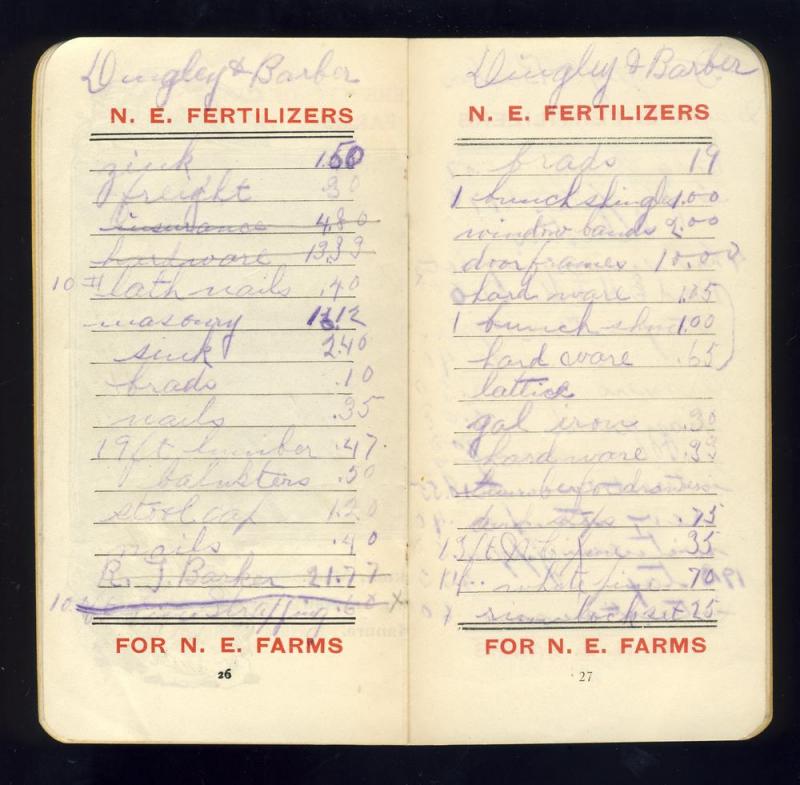 Dingley & Barber
N. E. FERTILIZERS
zink 1.50
freight 30
insurance 4.80
hardware 13.33
10 # lath nails .40
masonry
sink 2.40
brads .10
nails .35
19 ft lumber .47
balusters .50
stool cap 1.20
nails .40
R. J. Barker 21.77
strapping .60 x
FOR N. E. FARMS
26
Dingley & Barber
N. E. FERTILIZERS
brads 19
1 bunch shingles 1.00
window bands 2.00
doorframes 10.00
hard ware 1.05
1 bunch 1.00
hard ware .65
lattice
gal iron .30
hardware .33
stops .75
13 ft 35
11 " white pine 70
lock set 25
FOR N. E. FARMS
27